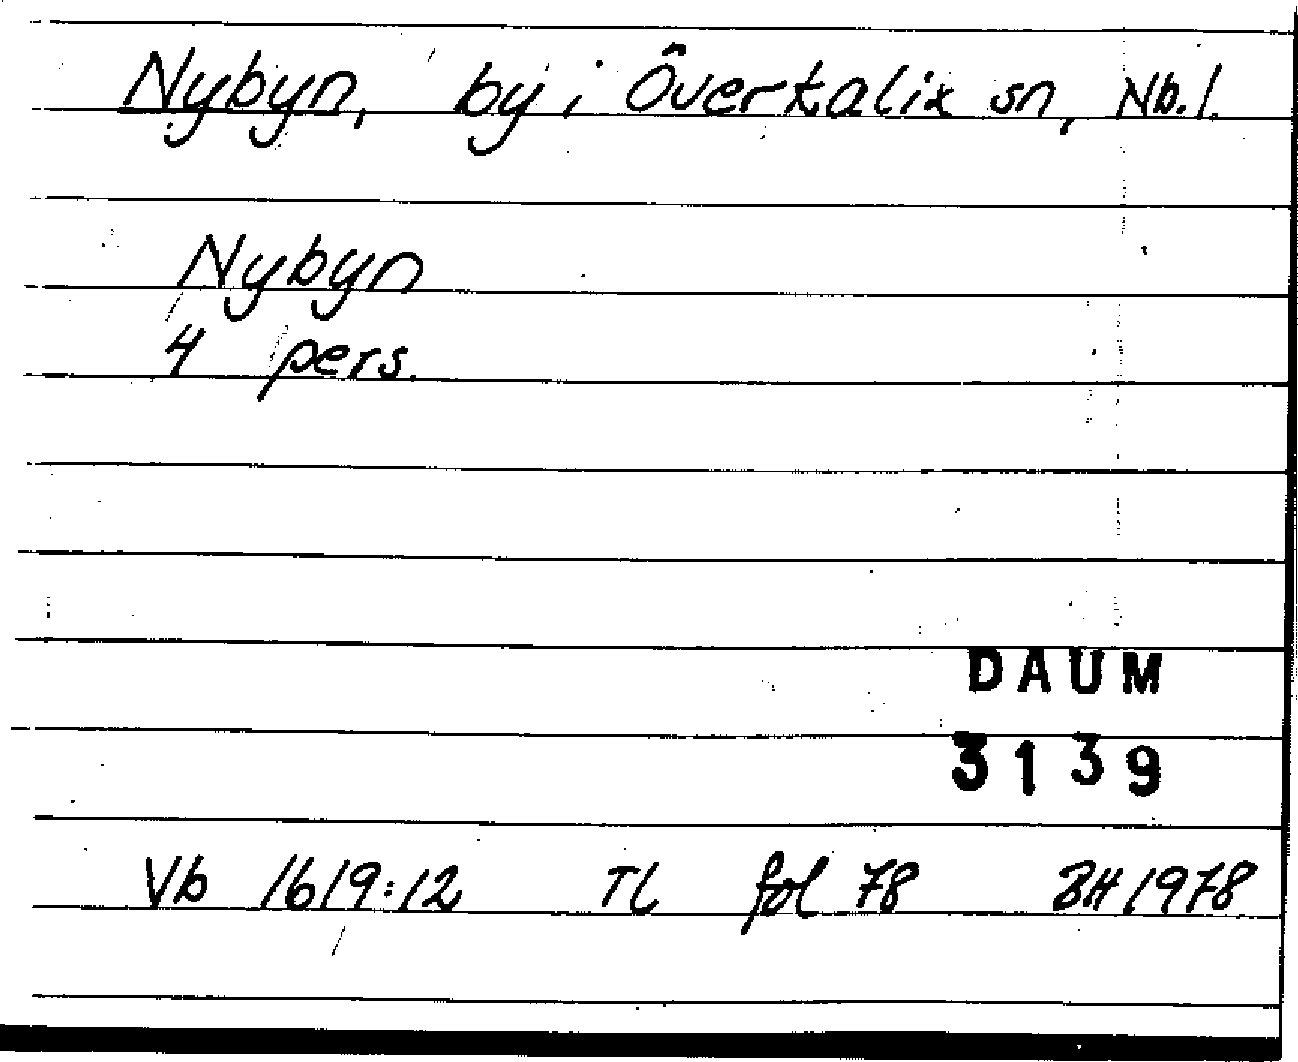 Nybyn, by i Överkalix sn, Nb.l.
Nybyn
4 pers.
DAUM
3139
Vb 1619:12 TL fol 78 BH 1978